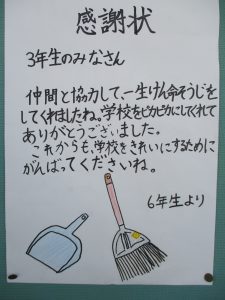 感謝状
3年生のみなさん
仲間と協力して、一生けん命そうじを
してくれましたね。学校をピカピカにしてくれて
ありがとうございました。
これからも、学校をきれいにするために
がんばってくださいね。
6年生より